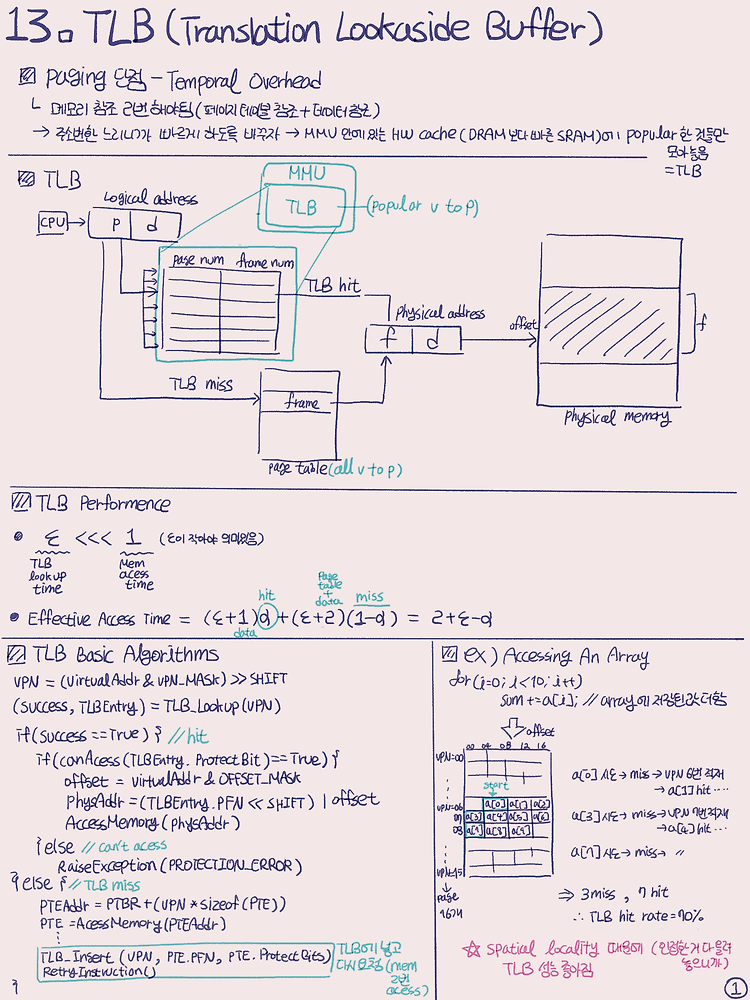 13. TLB (Translation Lookaside Buffer)
Paging 단점 - Temporal Overhead
└ 메모리 참조 2번 해야됨 (페이지 테이블 참조 + 데이터 참조)
→ 주소변환 느리니까 빠르게 하도록 바꾸자 → MMU 안에 있는 HW cache (DRAM보다 빠른 SRAM)에 popular한 것들만
모아놓음
= TLB
TLB
Logical address
MMU
TLB
(popular v to p)
CPU
p
d
page num
frame num
TLB hit
physical address
f
d
offset
f
TLB miss
frame
physical memory
page table (all v to p)
TLB Performence
ε <<< 1 (ε이 작아야 의미있음)
TLB
lookup
time
Mem
acess
time
hit
Page
table
+
data
miss
Effective Access Time = (ε+1)α+(ε+2)(1-α) = 2+ε-α
data
TLB Basic Algorithms
VPN = (VirtualAddr & VPN_MASK) >> SHIFT
(success, TLBEntry) = TLB_Lookup(VPN)
if(success == True) { // hit
if(canAcess(TLBEntry. ProtectBit) == True) {
offset = virtualAddr & OFFSET_MASK
PhysAddr = (TLBEntry. PFN << SHIFT) | offset
AccessMemory (physAddr)
} else // can't acess
RaiseException (PROTECTION_ERROR)
} else { // TLB miss
PTEAddr = PTBR + (VPN * sizeof(PTE))
PTE = AcessMemory(PTEAddr)
⋮
TLB_Insert (VPN, PTE.PFN, PTE.ProtectBits)
RetryInstruction()
TLB에 넣고
다시 요청 (mem
2번
acess)
}
ex) Accessing An Array
for(i=0; i<10; i++)
sum += a[i]; // array에 저장된 값 더함
offset
00 04 08 12 16
VPN=00
start
VPN=06 a[0] a[1] a[2]
07 a[3] a[4] a[5] a[6]
08 a[7] a[8] a[9]
VPN=15
page
16개
a[0] 시도 → miss → VPN 6번 적재
→ a[1] hit ····
a[3] 시도 → miss → VPN 7번 적재
→ a[4] hit ···
a[7] 시도 → miss → 〃
⇒ 3miss, 7 hit
∴ TLB hit rate = 70%
☆ spatial locality 때문에 (인접한거 다 올려
놓으니까)
TLB 성능 좋아짐
1